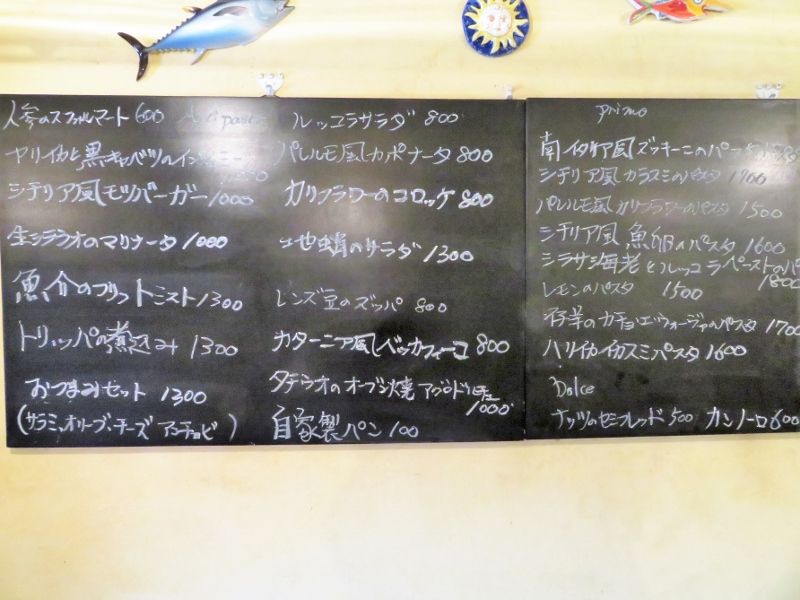 人参のスフォルマート 600 Antipasti
ヤリイカと黒キャベツのインツィミーノ
シチリア風モツバーガー 1000
生シラウオのマリナータ 1000
魚介のフリットミスト 1300
トリッパの煮込み 1300
おつまみセット 1300
(サラミ、オリーブ、チーズ アンチョビ)
ルッコラサラダ 800
パレルモ風カポナータ 800
カリフラワーのコロッケ 800
地蛸のサラダ 1300
レンズ豆のズッパ 800
カターニア風ベッカフィーコ 800
タチウオのオーブン焼 アグロドルチェ
1000
自家製パン 100
primo
南イタリア風ズッキーニのパスタ
シチリア風カラスミのパスタ 1700
パレルモ風カリフラワーのパスタ 1500
シチリア風 魚卵のパスタ 1600
シラサ海老とルッコラペーストのパ
1800
レモンのパスタ 1500
仔羊のカチョエウォーヴァのパスタ 1700
ハリイカイカスミパスタ 1600
Dolce
ナッツのセミフレッド 500 カンノーロ 600